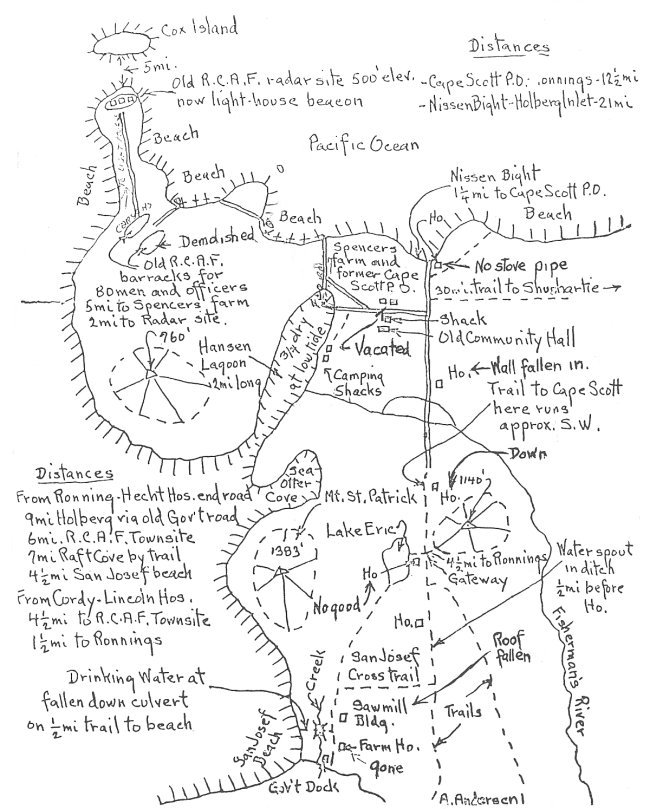 Cox Island
5mi.
Old R.C.A.F. radar site 500' elev.
now light-house beacon
Distances
-Cape Scott P.O.: onnings-12½mi
-Nissen Bight-Holberg Inlet-21mi
Pacific Ocean
Beach
Beach
Beach
Beach
Nissen Bight
1¼mi to Cape Scott P.O.
Beach
Ho.
Demolished
Old R.C.A.F.
barracks for
80 men and officers
5mi to Spencers' farm
2mi to Radar site.
Spencers
farm and
former Cape
Scott P.O.
No stove pipe
30mi. trail to Shushartie
Shack
Old Community Hall
Vacated
760'
Hansen
Lagoon
2mi long
3/4 dry
at low tide
Camping
Shacks
Ho.
Wall fallen in.
Trail to Cape Scott
here runs
approx. S.W.
Down
Ho.
1140'
Sea
Otter
Cove
Mt. St. Patrick
1383'
Lake Eric
Ho
No good
4½mi to Ronnings
Gateway
Water spout
in ditch
½mi before
Ho.
Distances
From Ronning-Hecht Hos. end road
9mi Holberg via old Gov't road
6mi. R.C.A.F. Townsite
7mi Raft Cove by trail
4½mi San Josef beach
From Cordy-Lincoln Hos.
4½mi to R.C.A.F. Townsite
1½mi to Ronnings
Ho.
Roof
fallen
San Josef
Cross trail
Sawmill
Bldg.
Trails
Fisherman's River
Drinking Water at
fallen down culvert
on ½mi trail to beach
Creek
San Josef
Beach
Farm Ho.
gone
Gov't Dock
A. Andersen